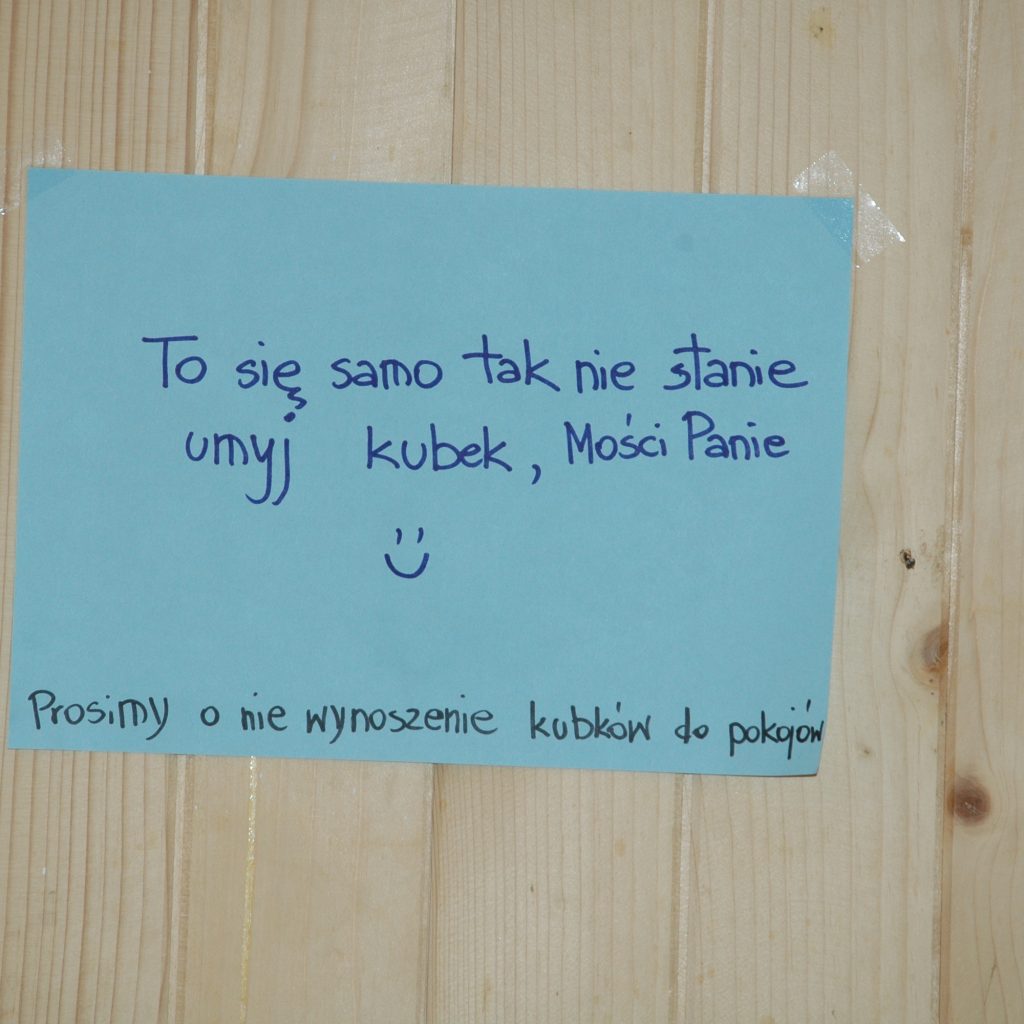 To się samo tak nie stanie
umyj kubek, Mości Panie
Prosimy o nie wynoszenie kubków do pokojów